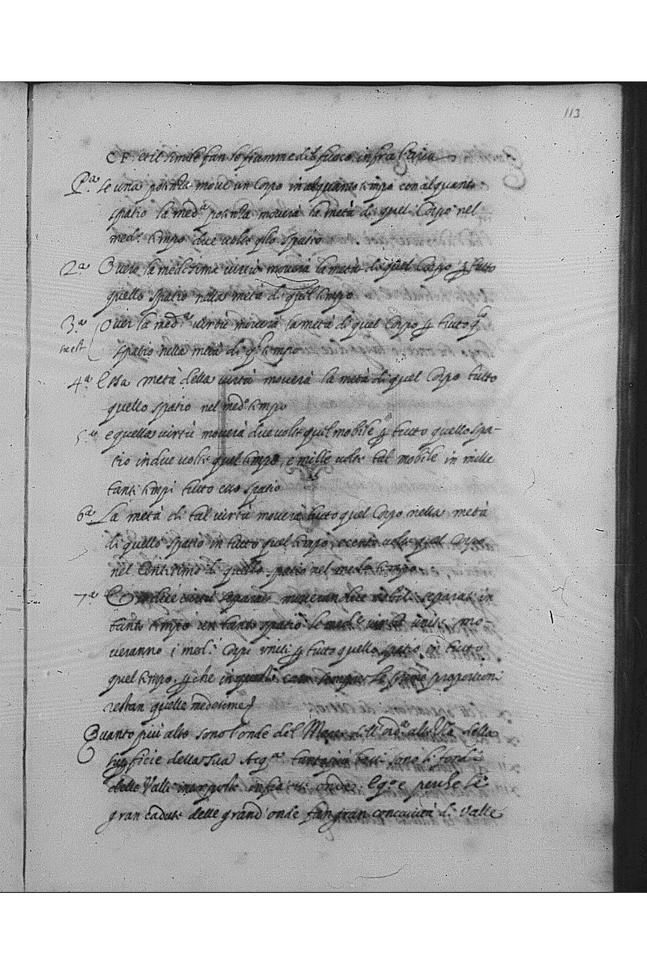 113
C F. et il simile fan le fiamme del fuoco infra l'aria
P.ª Se una potentia move un Corpo in alquanto tempo con alquanto
spatio la med.ª potentia moverà la metà di quel Corpo nel
med.º tempo due volte q.llo spatio
2.ª Overo la medesima virtù moverà la metà di q̃l Corpo p̱ tutto
quello spatio nella metà di q̃l tempo
3.ª Over la med.ª virtù moverà la metà di quel Corpo p̱ tutto q.º
spatio nella metà di q.l tempo
4.ª E la metà della virtù moverà la metà di quel Corpo tutto
quello spatio nel med.º tempo
5.ª e quella virtù moverà due volte q̃l mobile p̱ tutto quello spa-
tio in due volte quel tempo, e mille volte tal mobile in mille
tanti tempi tutto esso spatio
6.ª La metà di tal virtù moverà tutto quel Corpo nella metà
di quello spatio in tutto quel tempo, e cento volte quel Corpo
nel Centesimo di quello spatio nel med.º tempo
7.ª E se due virtù separate moveran due mobili separati in
tanto tempo un tanto spatio le med.e virtù unite mo
veranno i med.i Corpi uniti p̱ tutto quello spatio in tutto
quel tempo, p̱che in questo caso sempre le prime proportioni
restan quelle medesime
Quanto più alte sono l'onde del Mare dell'ord.º alteza della
superficie della sua Acq.ª tanto più basse sono li fondi
delle Valli interposte infra esse onde; E q.º è perche le
gran cadute delle grand'onde fan gran concavità di Valle